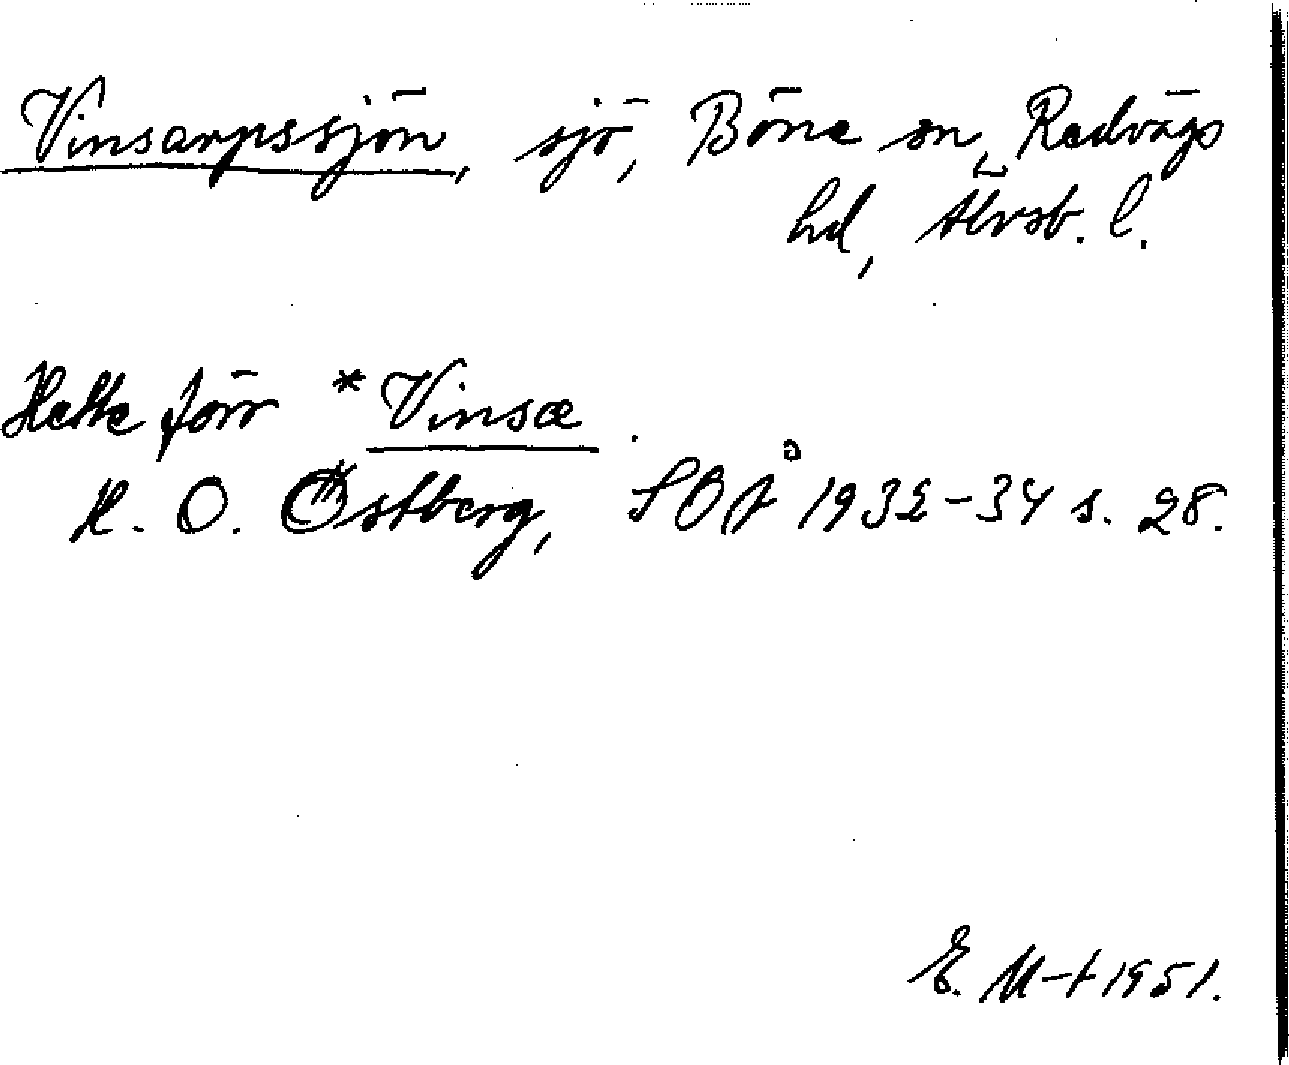 Vinsarpssjön, sjö, Böne sn, Redvägs
hd, Älvsb. l.
Hette förr *Vinsæ.
H. O. Östberg, SOÅ 1932-34 s. 28.
E. M-t 1951.